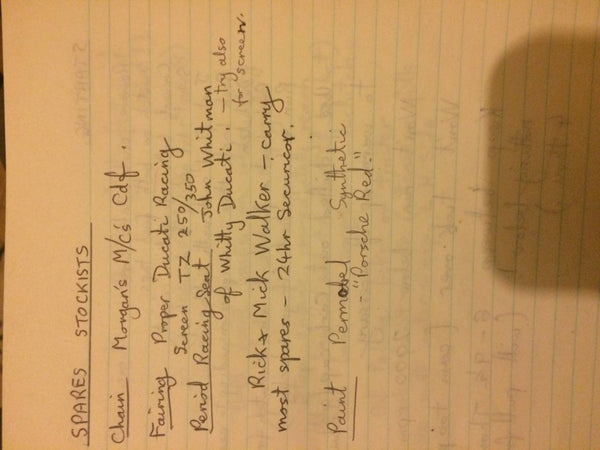 SPARES STOCKISTS
Chain Morgan's M/C's Cdf.
Fairing Proper Ducati Racing
Screen TZ 250/350
Period Racing Seat John Whitman
of Whitty Ducati. - try also
for screen.
Rick & Mick Walker - carry
most spares - 24hr Securicor.
Paint Permobel Synthetic
- "Porsche Red."